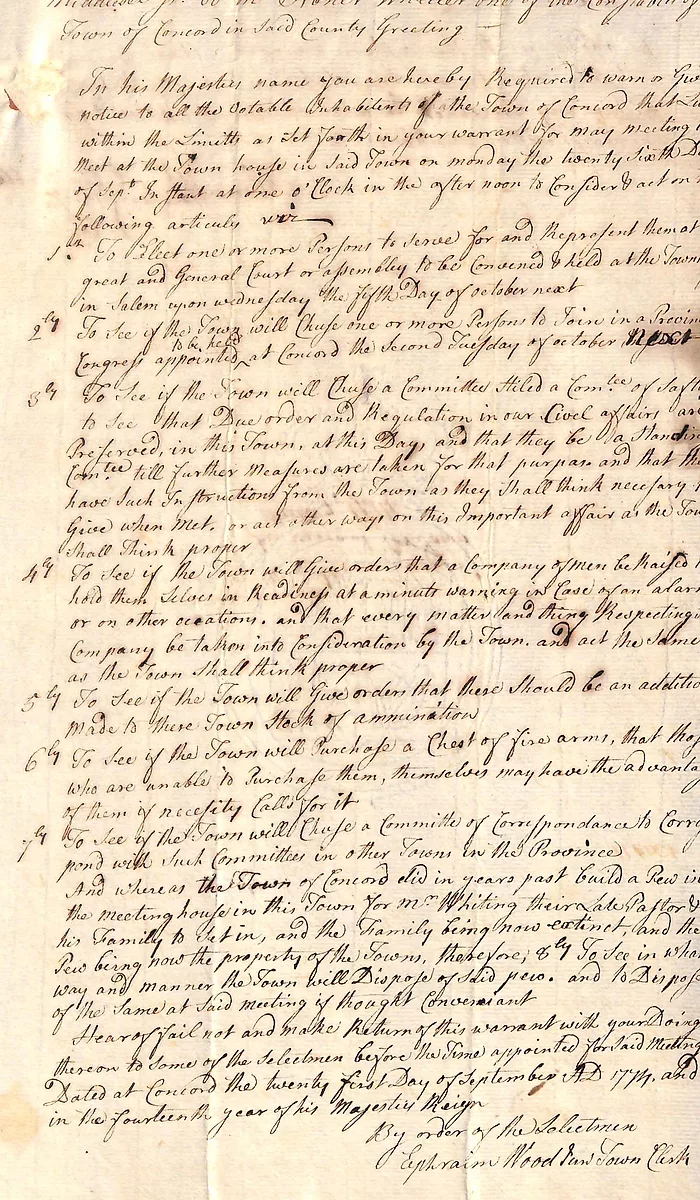 Middlesex ss. To Mr Abner Wheeler one of the Constables of
Town of Concord in Said County Greeting
In his Majesties name you are hereby Required to warn or Giv
notice to all the Votable inhabitents of the Town of Concord that Li
within the Limitts as Set forth in your warrant for may meeting
Meet at the Town house in said Town on monday the twenty Sixth D
of Sept. Instant at one o'Clock in the after noon to Consider & act on
following articuls viz
1st To Elect one or more Persons to serve for and Represent them at
great and General Court or assembley to be Convened & held at the Town
in Salem upon wednesday the fifth Day of october next
2ly To See if the Town will Chuse one or more Persons to Join in a Provin
to be held
Congress appointed ^ at Concord the Second Tuesday of october Next
3ly To See if the Town will Chuse a Committee Stiled a Comtee of Saf
to see that Due order and Regulation in our Civel affairs ar
Preserved, in this Town, at this Day, and that they be a Standin
Comtee till further measures are taken for that purpas and that th
have Such Instructions from the Town as they Shall think necesary
Give when Met. or act other ways on this Important affair as the Tow
Shall Think proper
4ly To See if the Town will Give orders that a Company of men be Raised
hold them Selves in Readiness at a minuts warning in Case of an alar
or on other occations. and that every matter and thing Respecting
Company be taken into Consideration by the Town. and act the Same
as the Town Shall think proper
5ly To See if the Town will Give orders that there Should be an additio
Made to there Town Stock of ammination
6ly To See if the Town will Purchase a Chest of fire arms, that tho
who are unable to Purchase them, themselves may have the advanta
of them if necesity Calls for it
7ly To See if the Town will Chuse a Committe of Correspondance to Corr
pond with Such Committees in other Towns in the Province
And whereas the Town of Concord did in years past build a Pew in
the meeting house in this Town for mr Whiting their Late Pastor &
his Familly to Set in, and the Family being now extinct, and the
Pew being now the property of the Towns, therefore, 8ly To See in wha
way and manner the Town will Dispose of Said pew. and to Dispose
of the Same at Said meeting if thought Conveniant
Hear of fail not and make Return of this warrant with your Doing
thereon to Some of the Selectmen before the Time appointed for Said Meeting
Dated at Concord the twenty first Day of September AD 1774, and
in the fourteenth year of his Majesties Reign
By order of the Selectmen
Ephraim Wood Jun Town Clerk